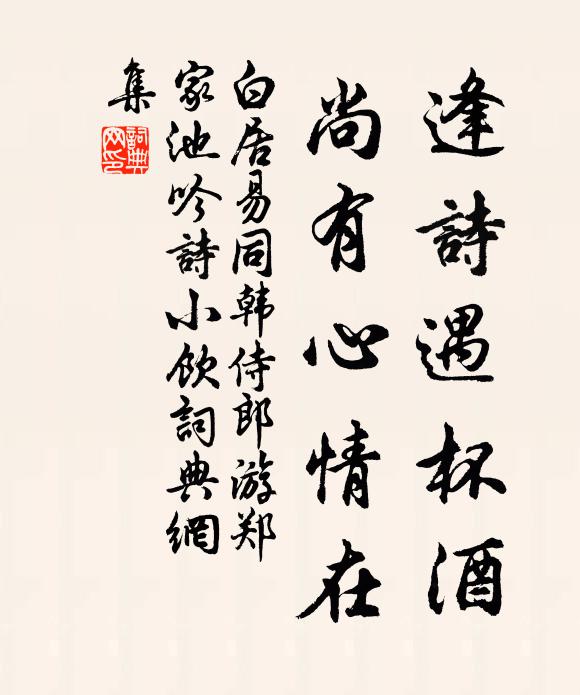 逢詩遇杯酒
尚有心情在
白居易同韩侍郎游郑
家池吟詩小飲詞典網
集
詞典
网印